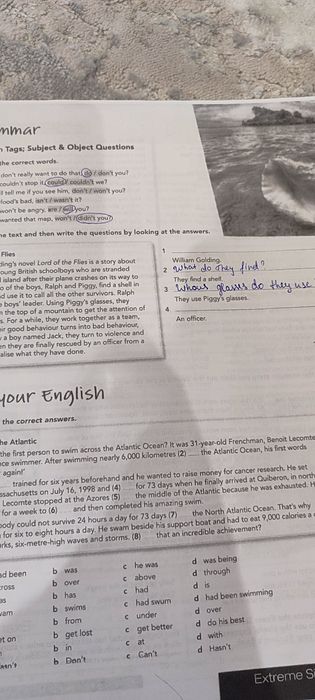 mmar
Tags; Subject & Object Questions
he correct words.
don't really want to do that, do / don't you?
couldn't stop it, could / couldn't we?
tell me if you see him, don't / won't you?
food's bad, isn't / wasn't it?
won't be angry, are / will you?
wanted that map, won't / didn't you?
e text and then write the questions by looking at the answers.
Flies
ding's novel Lord of the Flies is a story about
oung British schoolboys who are stranded
island after their plane crashes on its way to
o of the boys, Ralph and Piggy, find a shell in
d use it to call all the other survivors. Ralph
boys' leader. Using Piggy's glasses, they
the top of a mountain to get the attention of
s. For a while, they work together as a team,
ir good behaviour turns into bad behaviour,
a boy named Jack, they turn to violence and
en they are finally rescued by an officer from a
alise what they have done.
1
William Golding.
2 what do they find?
They find a shell.
3 whous glasses do they use
They use Piggy's glasses.
4
An officer.
your English
the correct answers.
he Atlantic
the first person to swim across the Atlantic Ocean? It was 31-year-old Frenchman, Benoit Lecomte
ce swimmer. After swimming nearly 6,000 kilometres (2) the Atlantic Ocean, his first words
again!'
trained for six years beforehand and he wanted to raise money for cancer research. He set
ssachusetts on July 16, 1998 and (4) for 73 days when he finally arrived at Quiberon, in north
Lecomte stopped at the Azores (5) the middle of the Atlantic because he was exhausted. H
for a week to (6) and then completed his amazing swim.
body could not survive 24 hours a day for 73 days (7) the North Atlantic Ocean. That's why
for six to eight hours a day. He swam beside his support boat and had to eat 9,000 calories a
rks, six-metre-high waves and storms. (8) that an incredible achievement?
d been b was c he was d was being
ross b over c above d through
as b has c had d is
vam b swims c had swum d had been swimming
b from c under d over
et on b get lost c get better d do his best
b in c at d with
asn't b Don't c Can't d Hasn't
Extreme S